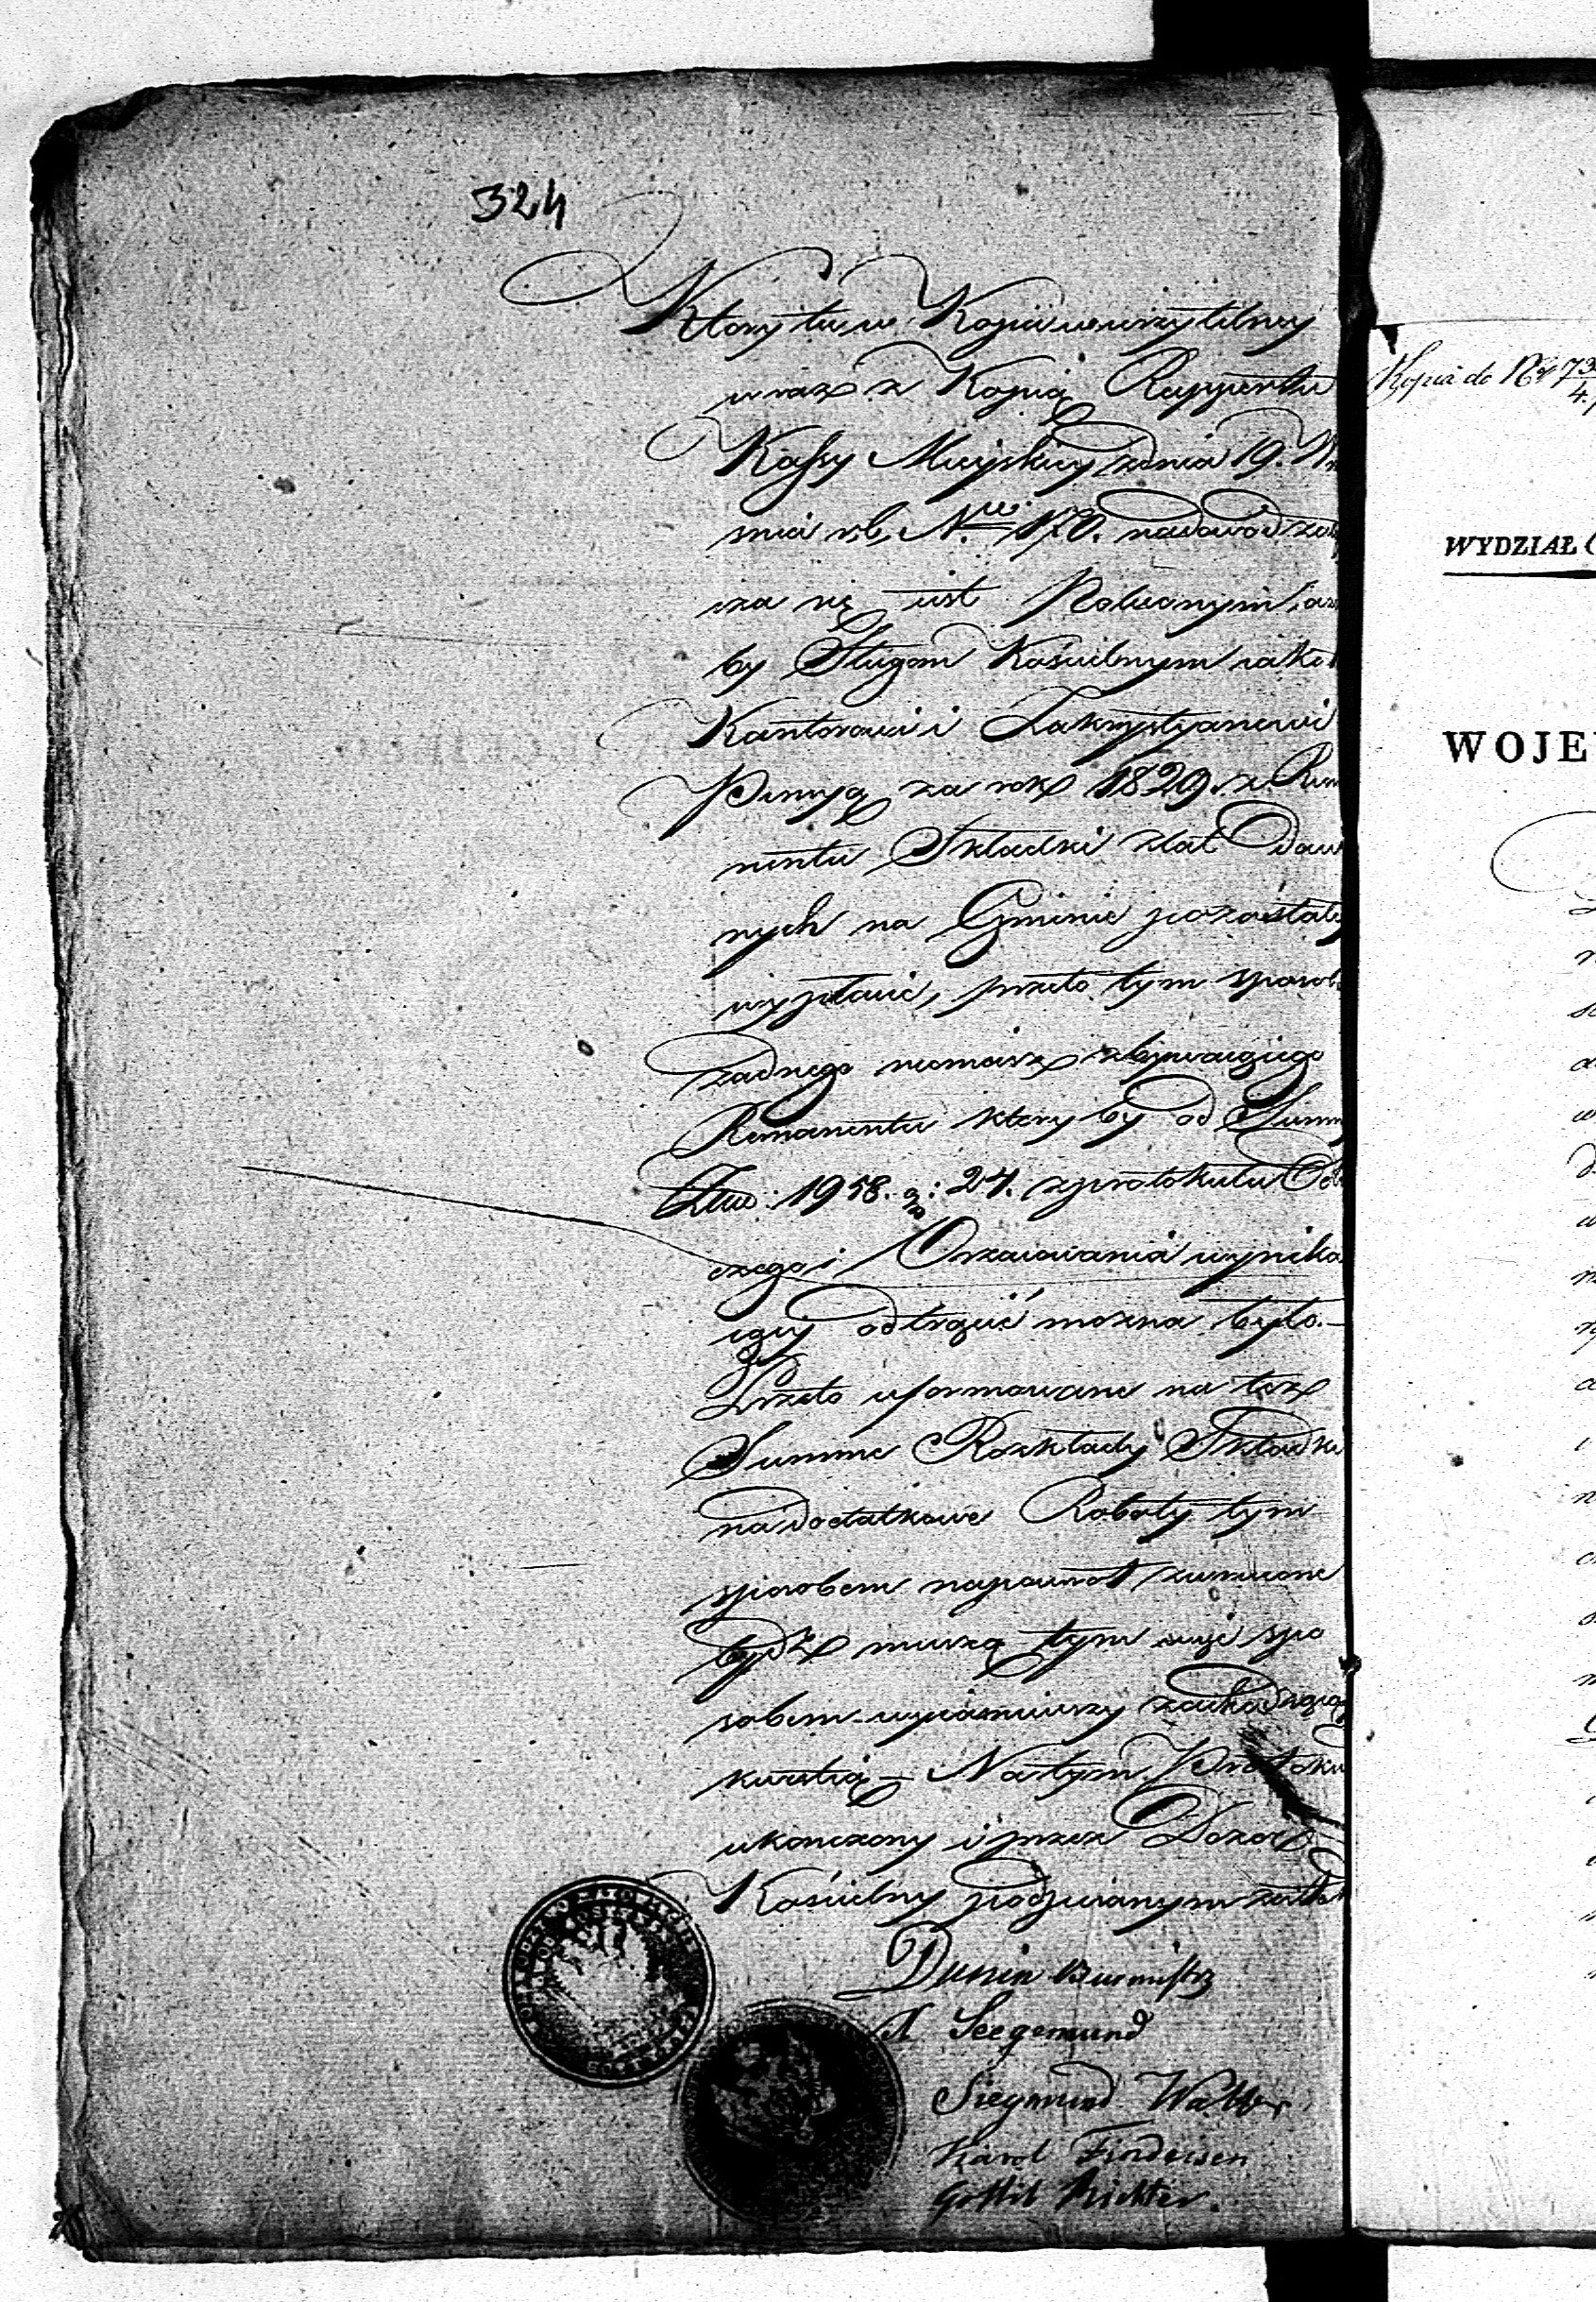 324
Ktory tu w Kopii wierzytelney
wraz z Kopią Rapportu
Kassy Mieyskiey z dnia 19. W
snia r.b. N. 170. na dowod
cza się iest Poleconym, a
by Sługom Kościelnym iako
Kantorowi i Zakrystyanowi
Pensyą za rok 1829. z Rema
nentu Składki z lat Daw
nych na Gminie pozostały
wypłacić, przeto tym sposob
żadnego niemasz zbywaiącego
Remanentu ktory by od Summy
Złpo: 1958. g: 24. z protokułu Od
czego i Oszacowania wynika
iącey odtrącić można było.
Przeto uformowane na też
Summe Rozkłady Składki
na dodatkowe Roboty tym
sposobem napowrót zwrócone
bydź muszą tym więc spo
sobem
kwestią – Na tym Protoku
ukonczony i przez Dozor
Kościelny podpisanym został
Dunin Burmistrz
Seegemund
Siegmund Walter
Karol Findeisen
Gottlib Richter.
Kopia do No 73
4
WYDZIAŁ
WOJE